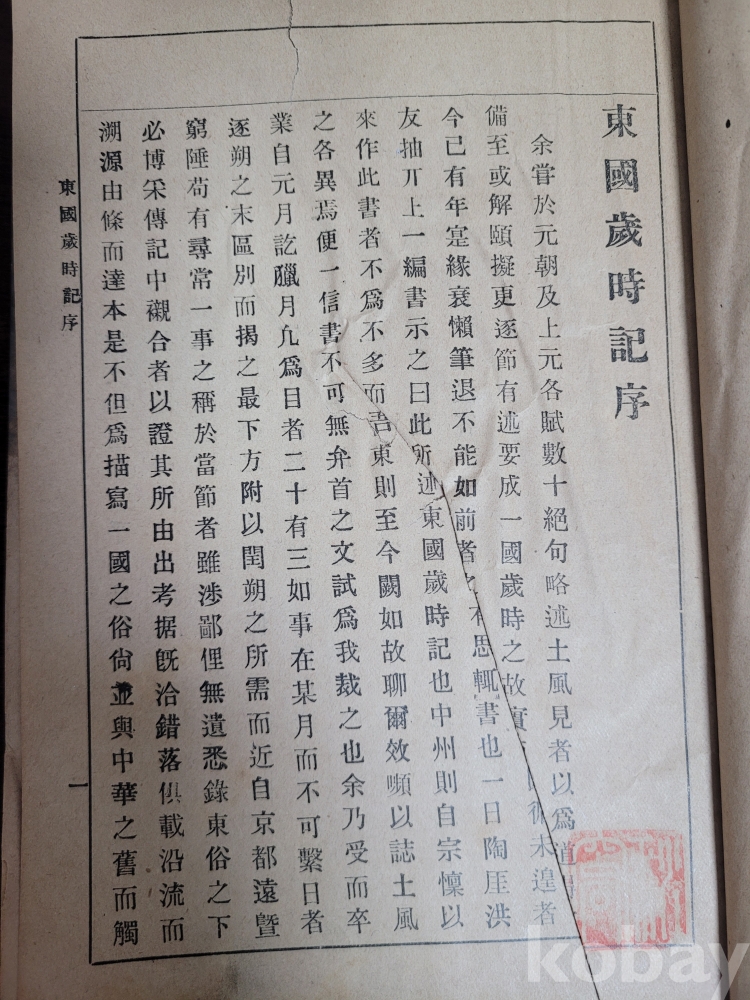 東國歲時記序
余嘗於元朝及上元各賦數十絕句略述土風見者以爲道
備至或解頤擬更逐節有述要成一國歲時之故實未遑者
今已有年寔緣衰懶筆退不能如前者之有思輒書也一日陶厓洪
友抽丌上一編書示之曰此所述東國歲時記也中州則自宗懍以
來作此書者不爲不多而吾東則至今闕如故聊爾效嚬以誌土風
之各異焉便一信書不可無弁首之文試爲我裁之也余乃受而卒
業自元月訖臘月凢爲目者二十有三如事在某月而不可繫日者
逐朔之末區別而揭之最下方附以閏朔之所需而近自京都遠曁
窮陲苟有尋常一事之稱於當節者雖涉鄙俚無遺悉錄東俗之下
必博采傳記中襯合者以證其所由出考据旣洽錯落俱載沿流而
溯源由條而達本是不但爲描寫一國之俗尙並與中華之舊而觸
東國歲時記序
一
kobay